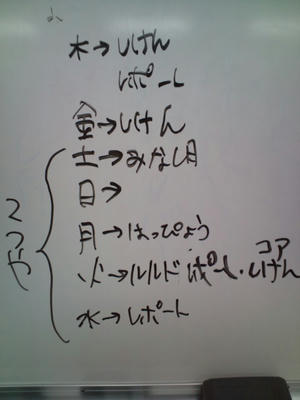 木→しけん
レポート
金→しけん
土→みなし月
日→
月→はっぴょう
火→ルルド レポート・コアしけん
水→レポート
てつや